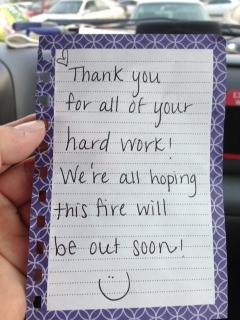 Thank you
for all of your
hard work!
We're all hoping
this fire will
be out soon!